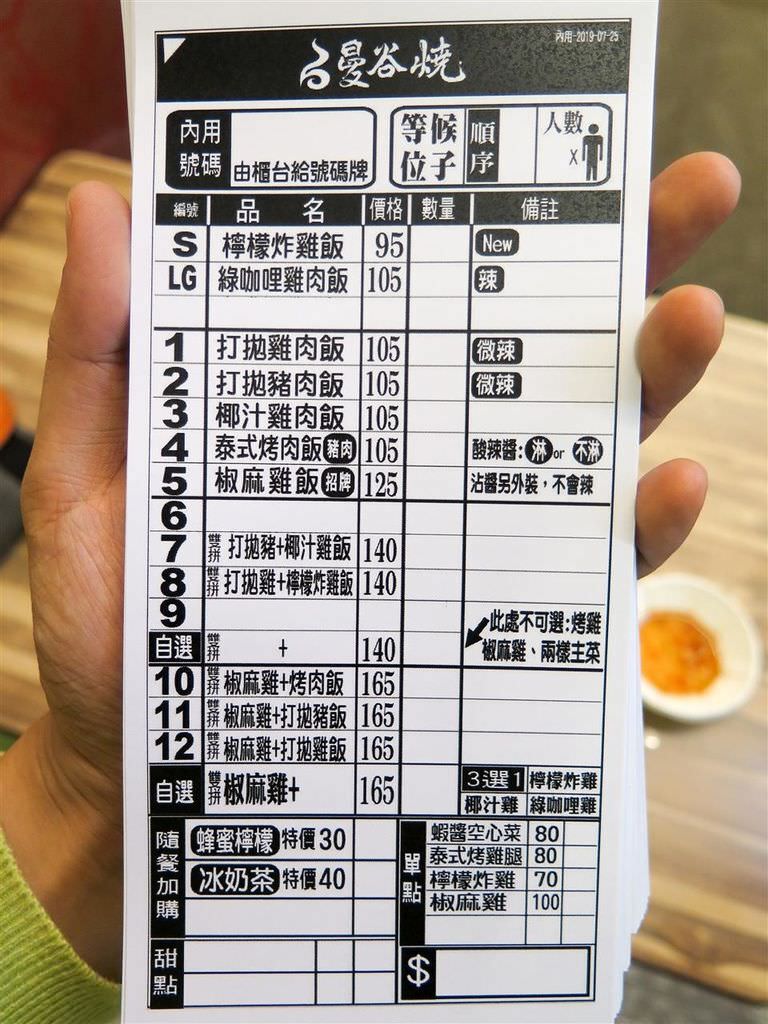 內用-2019-07-25
曼谷燒
內用號碼 由櫃台給號碼牌 等候位子 順序 人數 x
編號 品名 價格 數量 備註
S 檸檬炸雞飯 95 New
LG 綠咖哩雞肉飯 105 辣
1 打拋雞肉飯 105 微辣
2 打拋豬肉飯 105 微辣
3 椰汁雞肉飯 105
4 泰式烤肉飯 豬肉 105 酸辣醬:淋or不淋
5 椒麻雞飯 招牌 125 沾醬另外裝,不會辣
6
7 雙拼 打拋豬+椰汁雞飯 140
8 雙拼 打拋雞+檸檬炸雞飯 140
9
自選 雙拼 + 140 此處不可選:烤雞
椒麻雞、兩樣主菜
10 雙拼 椒麻雞+烤肉飯 165
11 雙拼 椒麻雞+打拋豬飯 165
12 雙拼 椒麻雞+打拋雞飯 165
自選 雙拼 椒麻雞+ 165 3選1 檸檬炸雞
椰汁雞 綠咖哩雞
隨餐加購
蜂蜜檸檬 特價30
冰奶茶 特價40
單點
蝦醬空心菜 80
泰式烤雞腿 80
檸檬炸雞 70
椒麻雞 100
甜點
$